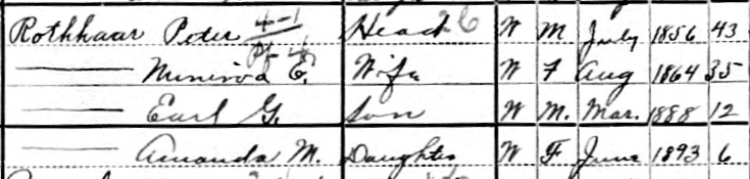 Rothhaar Peter 4-1 Head 26 W M July 1856 43
—— Minerva E. Wife W F Aug 1864 35
—— Earl G. Son W M. Mar. 1888 12
—— Amanda M. Daughter W F June 1893 6